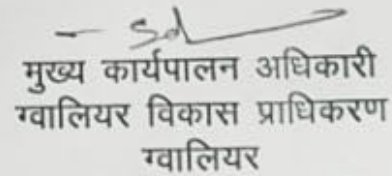 Sd
मुख्य कार्यपालन अधिकारी
ग्वालियर विकास प्राधिकरण
ग्वालियर